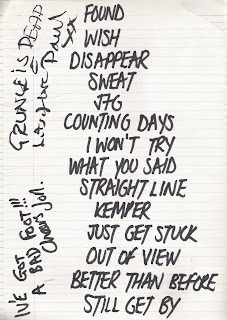 FOUND
WISH
DISAPPEAR
SWEAT
J7G
COUNTING DAYS
I WON'T TRY
WHAT YOU SAID
STRAIGHT LINE
KEMPER
JUST GET STUCK
OUT OF VIEW
BETTER THAN BEFORE
STILL GET BY
GRUNGE IS DEAD
Love
xx
I'VE GOT FOOT!!!
A BAD
Cheers Jon.